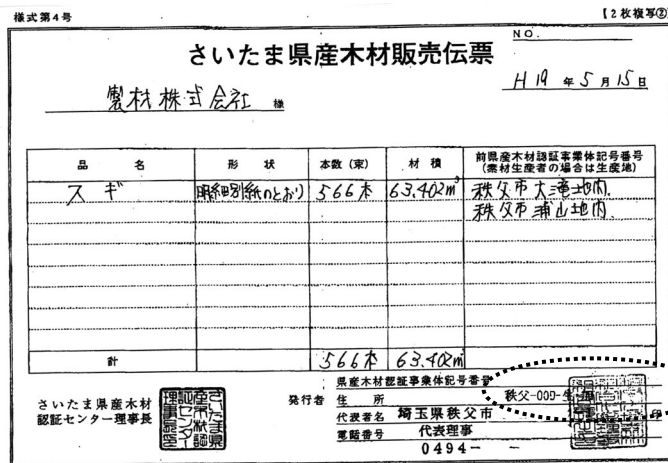 様式第4号
【2枚複写②
NO.
さいたま県産木材販売伝票
H19年5月15日
製材株式会社 様
品名 形状 本数(束) 材積 前県産木材認証事業体記号番号
(素材生産者の場合は生産地)
スギ 明細別紙のとおり 566本 63.402m³ 秩父市大滝地内.
秩父市浦山地内.
計 566本 63.402m³
さいたま県産木材
認証センター理事長
発行者
県産木材認証事業体記号番号
秩父-009-生
住所
代表者名 埼玉県秩父市
代表理事
印
電話番号
0494- -